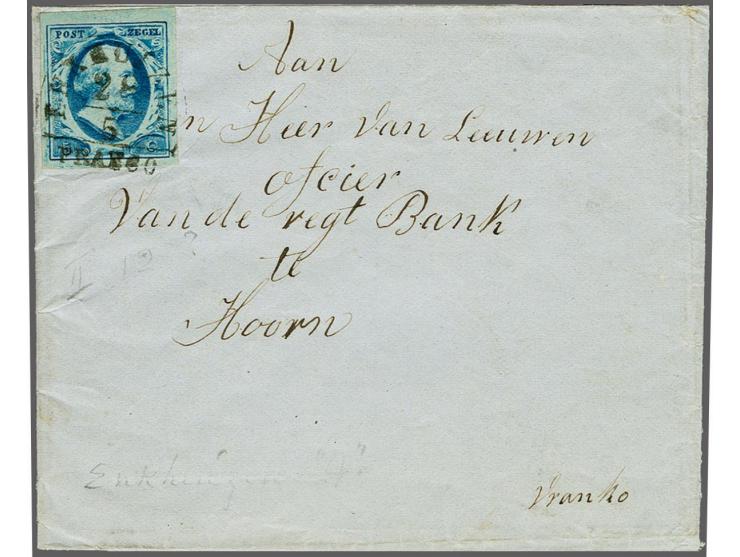 POST ZEGEL
28
5
FRANCO
Aan
n Hier van Leeuwen
ofcier
Van de regt Bank
te
Hoorn
II 19
Enkhuizen "A"
Vranko